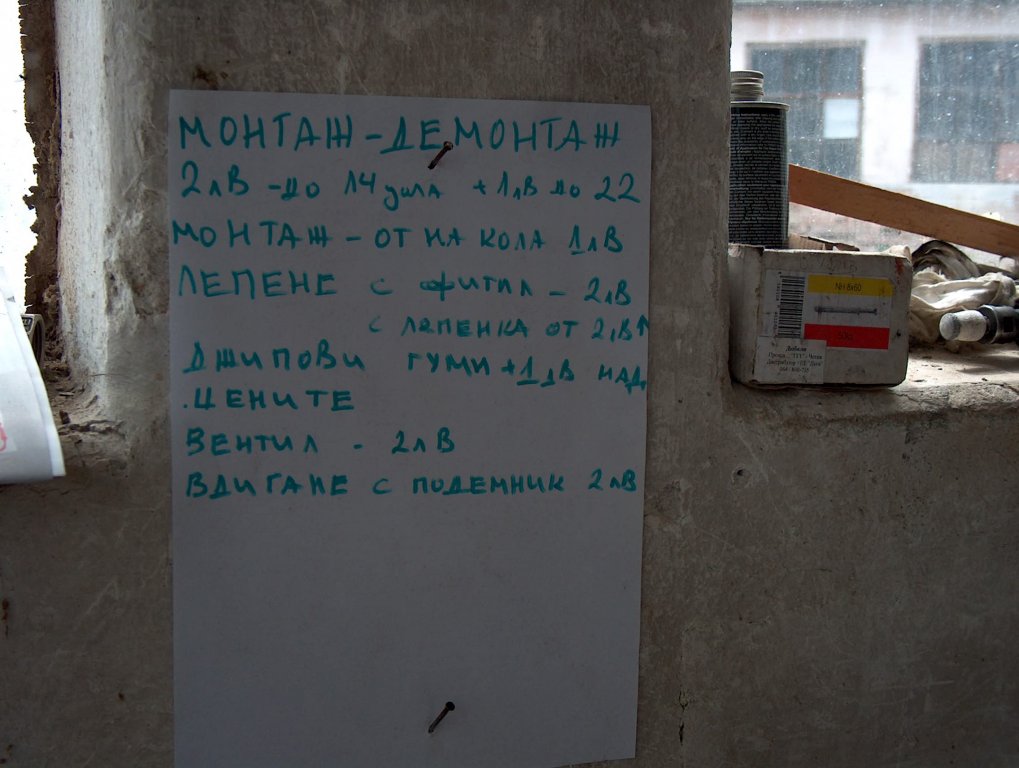 МОНТАЖ-ДЕМОНТАЖ
2лВ -до 14 цола +1лВ до 22
МОНТАЖ - ОТ НА КОЛА 1лВ
ЛЕПЕНЕ С ФИТИЛ - 2лВ
С ЛЕПЕНКА ОТ 2лВ↑
ДЖИПОВИ ГУМИ +1лВ НАД
.ЦЕНИТЕ
ВЕНТИЛ - 2лВ
ВДИГАНЕ С ПОДЕМНИК 2лВ
NH 8x60
Дюбели